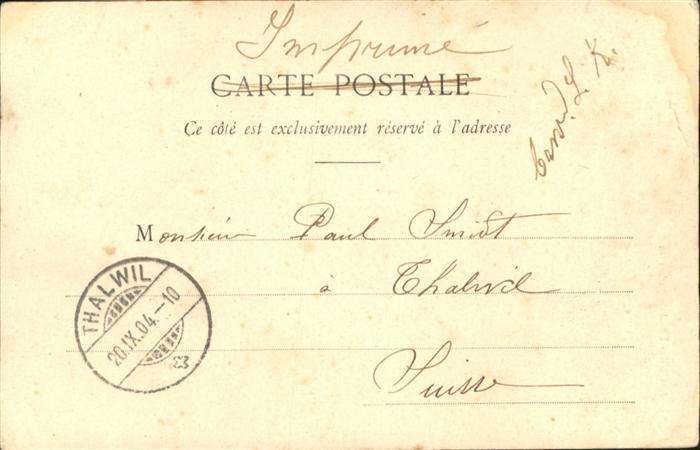 Imprimé
CARTE POSTALE
Ce côté est exclusivement réservé à l'adresse
L. K.
Monsieur Paul
à Thalwil
Suisse
THALWIL
20.IX.04.-10